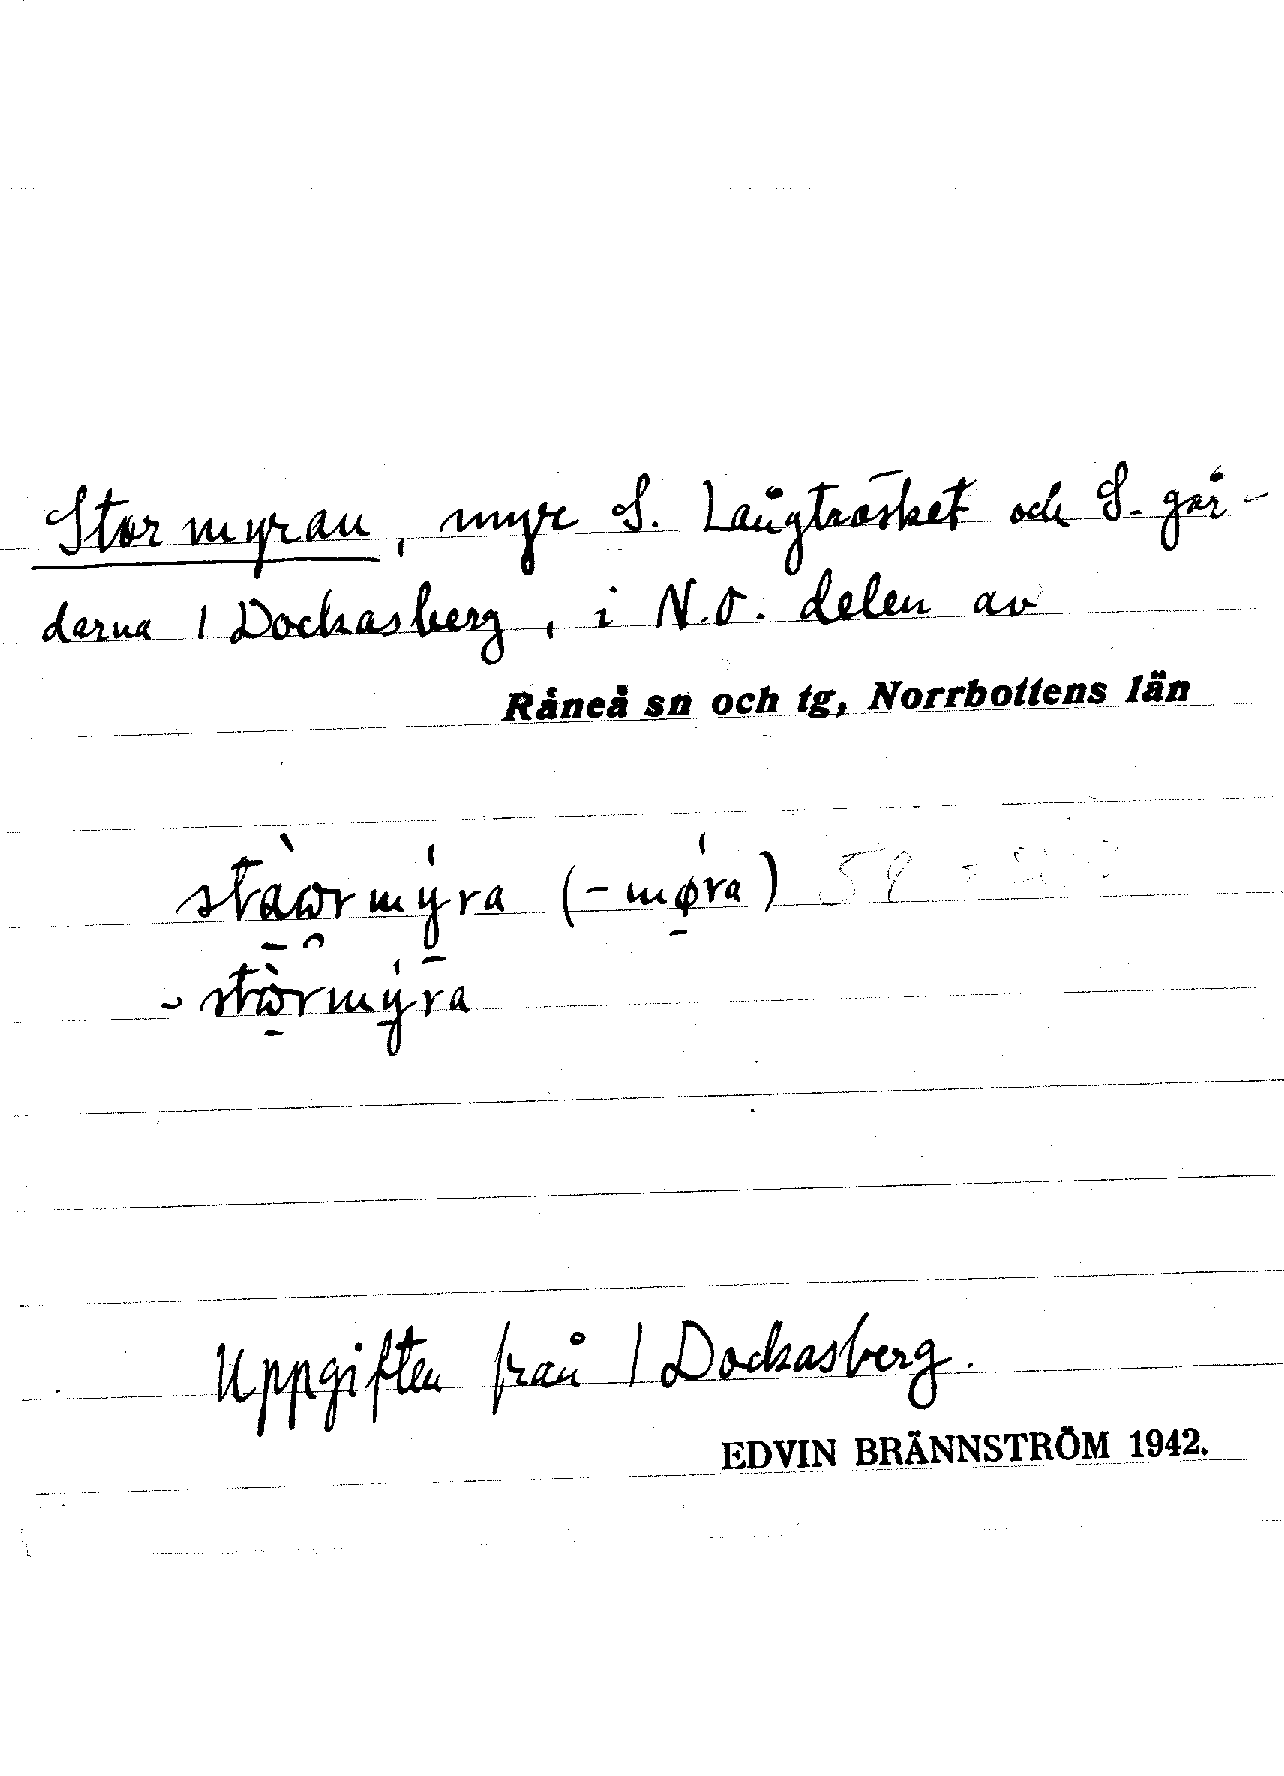 Stormyran, myr S. Långträsket och S. går-
darna 1 Dockasberg, i N.O. delen av
Råneå sn och tg, Norrbottens län
stàɷrmýra (-mǿra)
~ stɷ̀rmýra
Uppgiften från 1 Dockasberg.
EDVIN BRÄNNSTRÖM 1942.